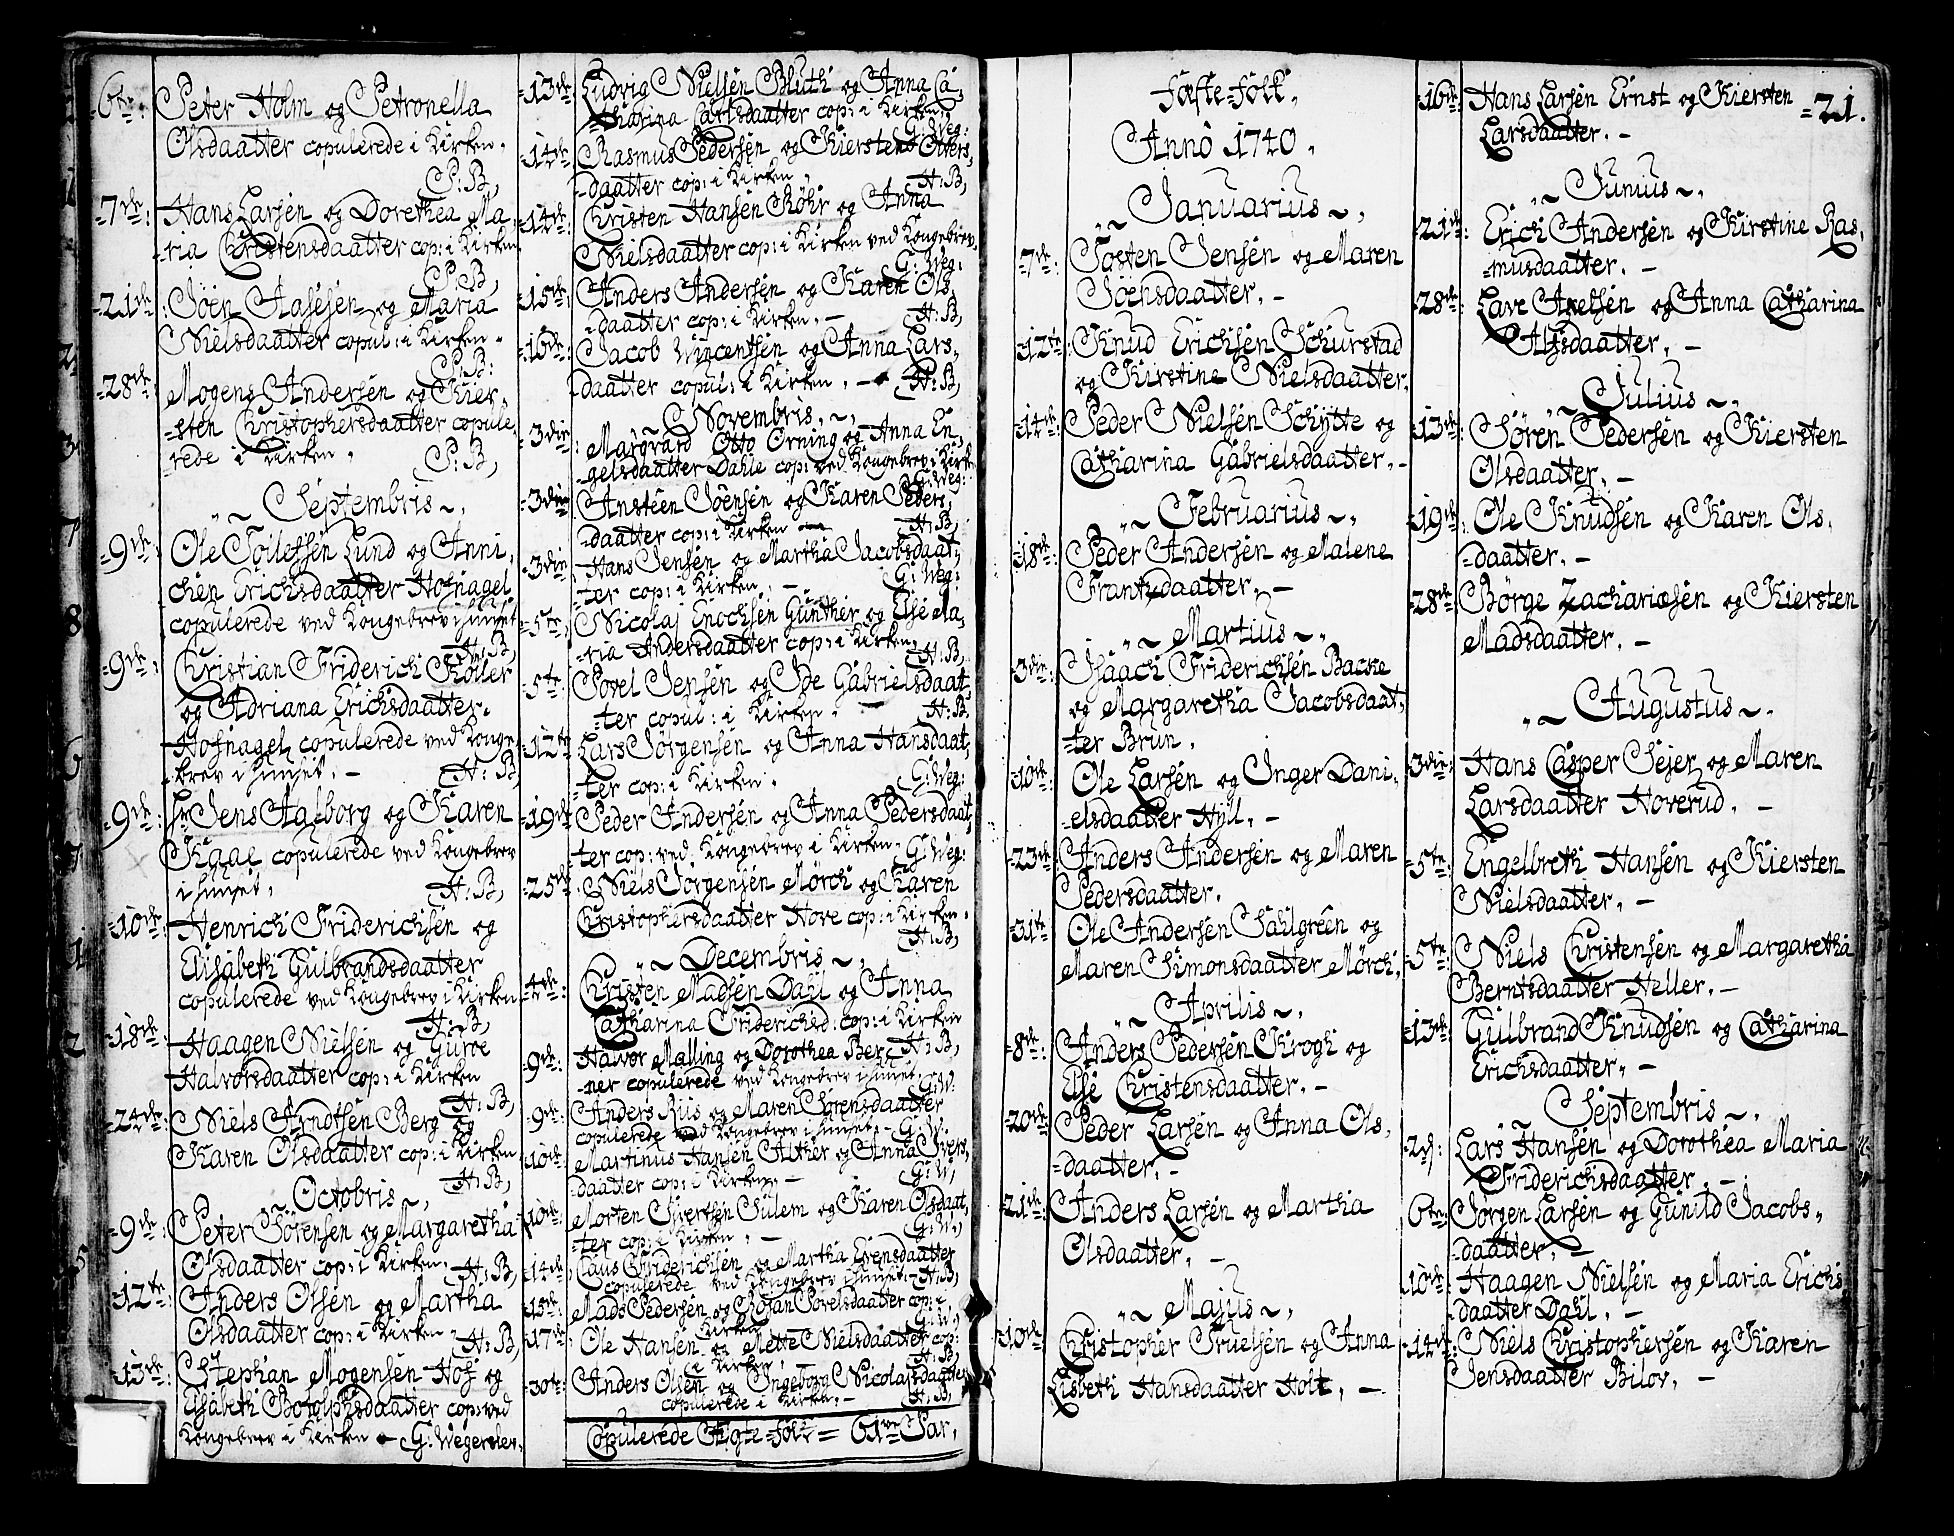 6te: Peter Holm og Petronella
Olsdaatter copulerede i Kirken.
P: B,
7de: Hans Larsen og Dorethea Ma-
-ria Christensdaatter cop: i Kirken.
P: B,
21de: Jöen Aasesen og Maria
Nielsdaatter copul: i Kirken.
P: B:
28de: Mogens Andersen og Kier-
-sten Christophersdaatter copule-
-rede i Kirken. P: B,
Septembris
9de: Ole Toilefsen Lund og Anni-
chen Erichsdaatter Hofnagel
copulerede ved Kongebrev i huuset
H: B,
9de: Christian Friderich Köller
og Adriana Erichsdaatter
Hofnagel copulerede ved Konge-
-brev i huuset. - H: B,
9de: Hr Jens Aalborg og Karen
Kaae copulerede ved Kongebrev
i huuset. H: B,
10de: Henrich Friderichsen og
Elisabeth Gulbrandsdaatter
copulerede ved Kongebrev i Kirken
H: B,
18de: Haagen Nielsen og Guroe
Halvorsdaatter cop: i Kirken
H: B,
24de: Niels Arndtsen Berg og
Karen Olsdaatter cop: i Kirken
H: B,
Octobris
9de: Peter Sörensen og Margaretha
Olsdaatter cop: i Kirken. H: B,
12te: Anders Olsen og Martha
Olsdaatter cop: i Kirken - H: B,
13de: Stephan Mogensen Hof og
Elsabeth Botolphsdaatter cop: ved
Kongebrev i Kirken - G: Wegersløv.
13de: Ludvig Nielsen Bluth og Anna Ca-
-tharina Carlsdaatter cop: i Kirken.
G: Weg:
14de: Rasmus Pedersen og Kiersten Olvers-
-daatter cop: i Kirken. H: B,
14de: Christen Hansen Röhr og Anna
Nielsdaatter cop: i Kirken ved Kongebrev.
G: Weg:
15de: Anders Andersen og Karen Ols-
-daatter cop: i Kirken. - H: B,
16de: Jacob Vincentsen og Anna Lars-
daatter copul: i Kirken. - H: B,
Novembris.
3die: Margvard Otto Örning og Anna En-
-gelsdaatter Dahle cop: ved Kongebrev i Kirken
G: Weg:
3die: Ansteen Joensen og Karen Peders-
-daatter cop: i Kirken - H: B,
3die: Hans Jensen og Martha Jacobsdaat-
-ter cop: i Kirken. - G: Weg:
5te: Nicolai Enochsen Günther og Else Ma-
-ria Andersdaatter cop: i Kirken.
H: B,
5te: Povel Jensen og Ide Gabrielsdaat-
-ter copul: i Kirken. - H: B,
12te: Lars Jörgensen og Anna Hansdaat-
-ter cop: i Kirken. G: Weg:
19de: Peder Andersen og Anna Pedersdaat-
-ter cop: ved Kongebrev i Kirken. G: Weg:
25de: Niels Jörgensen Mörch og Karen
Christophersdaatter Hove cop: i Kirken.
H: B,
Decembris
4de: Christen Madsen Dahl og Anna
Catharina Friderichsd: cop: i Kirken
H: B,
9de: Halvor Malling og Dorothea Berg-
-ner copulerede ved Kongebrev i huuset.
G: W:
9de: Anders Riis og Maren Sörensdaatter
copulerede ved Kongebrev i huuset. - G: W.
10de: Martinus Hansen Alther og Anna Ivers-
daatter cop: i Kirken. - G: W,
10de: Morten Sivertsen Sulem og Karen Olsdaat-
-ter cop: i Kirken. - G: W,
14de: Claus Friderichsen og Martha Evensdaatter
copulerede ved Kongebrev i huuset. H: B,
15de: Mads Pedersen og Johan Povelsdaatter cop: i
Kirken G: W,
17de: Ole Hansen og Mette Nielsdaatter cop:
i Kirken. - H: B,
30te: Anders Olsen og Ingeborg Nicolaisdaatter
copulerede i Kirken. - H: B,
Copulerede Ægte-folk = 61ve Par.
Fæste-folk.
Annô 1740.
Januarius
7de: Tosten Jensen og Maren
Jochsdaatter. -
12te: Knud Erichsen Schurstad
og Kirstine Nielsdaatter.
14de: Peder Nielsen Schytte og
Catharina Gabrielsdaatter. -
Februarius
18de: Peder Andersen og Malene
Frantzdaatter. -
Martius
3die: Isaach Friderichsen Backe
og Margaretha Jacobsdaat-
-ter Brun.
10de: Ole Larsen og Inger Dani-
-elsdaatter Hyll. -
23de: Anders Andersen og Maren
Pedersdaatter.
31te: Ole Andersen Sahlgreen og
Maren Simonsdaatter Mörch.
Aprilis
8de: Anders Pedersen Krogh og
Else Christensdaatter. -
20de: Peder Larsen og Anna Ols-
-daatter. -
21de: Anders Larsen og Martha
Olsdaatter. -
Majus
10de: Christopher Truelsen og Anna
Lisbeth Hansdaatter Holt. -
16de: Hans Larsen Ernst og Kiersten = 21.
Larsdaatter. -
Junius
21de: Erich Andersen og Kirstine Ras-
-musdaatter. -
28de: Lave Axelsen og Anna Catharina
Alfsdaatter. -
Julius
13de: Sören Pedersen og Kiersten
Olsdaatter. -
19de: Ole Knudsen og Karen Ols-
-daatter. -
28de: Börge Zachariæsen og Kiersten
Madsdaatter. -
Augustus
3die: Hans Casper Sejer og Maren
Larsdaatter Hoverud. -
5te: Engelbreth Hansen og Kiersten
Nielsdaatter. -
5te: Niels Christensen og Margaretha
Berntsdaatter Heller. -
13de: Gulbrand Knudsen og Catharina
Erichsdaatter. -
Septembris
2d: Lars Hansen og Dorothea Maria
Friderichsdaatter. -
6te: Jörgen Larsen og Gunild Jacobs-
-daatter. -
10de: Haagen Nielsen og Maria Erichs
daatter Dahl. -
14de: Niels Christophersen og Karen
Jensdaatter Bilov. -